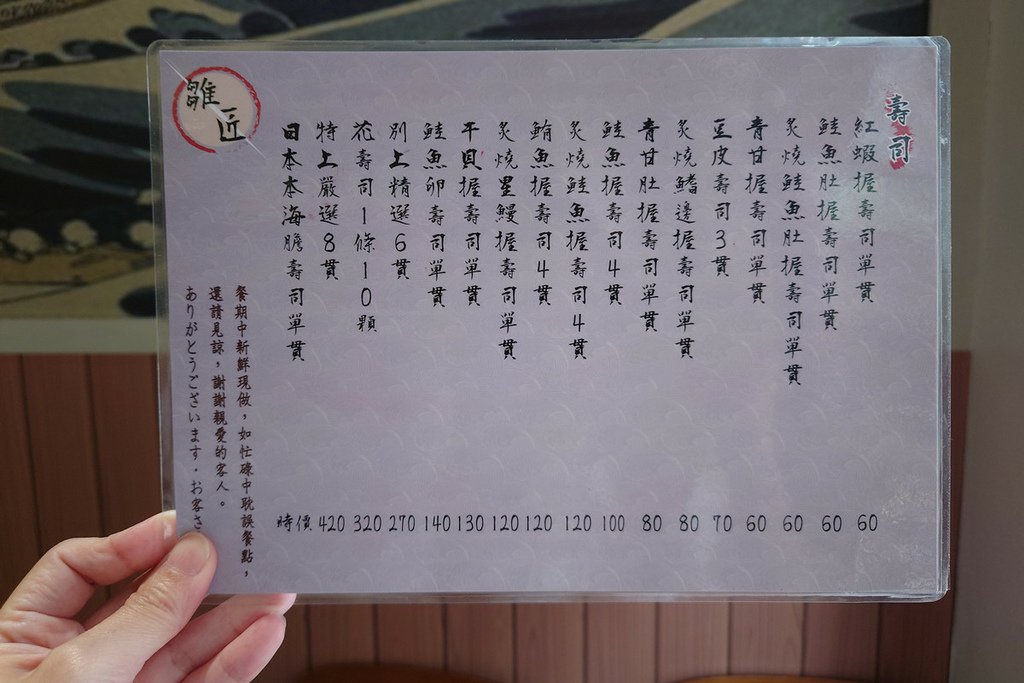 壽司
紅蝦握壽司單貫 60
鮭魚肚握壽司單貫 60
炙燒鮭魚肚握壽司單貫 60
青甘握壽司單貫 60
豆皮壽司3貫 70
炙燒鰭邊握壽司單貫 80
青甘肚握壽司單貫 80
鮭魚握壽司4貫 100
炙燒鮭魚握壽司4貫 120
鮪魚握壽司4貫 120
炙燒星鰻握壽司單貫 120
干貝握壽司單貫 130
鮭魚卵壽司單貫 140
別上精選6貫 270
花壽司1條10顆 320
特上嚴選8貫 420
日本本海膽壽司單貫 時價
餐期中新鮮現做，如忙碌中耽誤餐點，
還請見諒，謝謝親愛的客人。
ありがとうございます．お客さ
雛匠